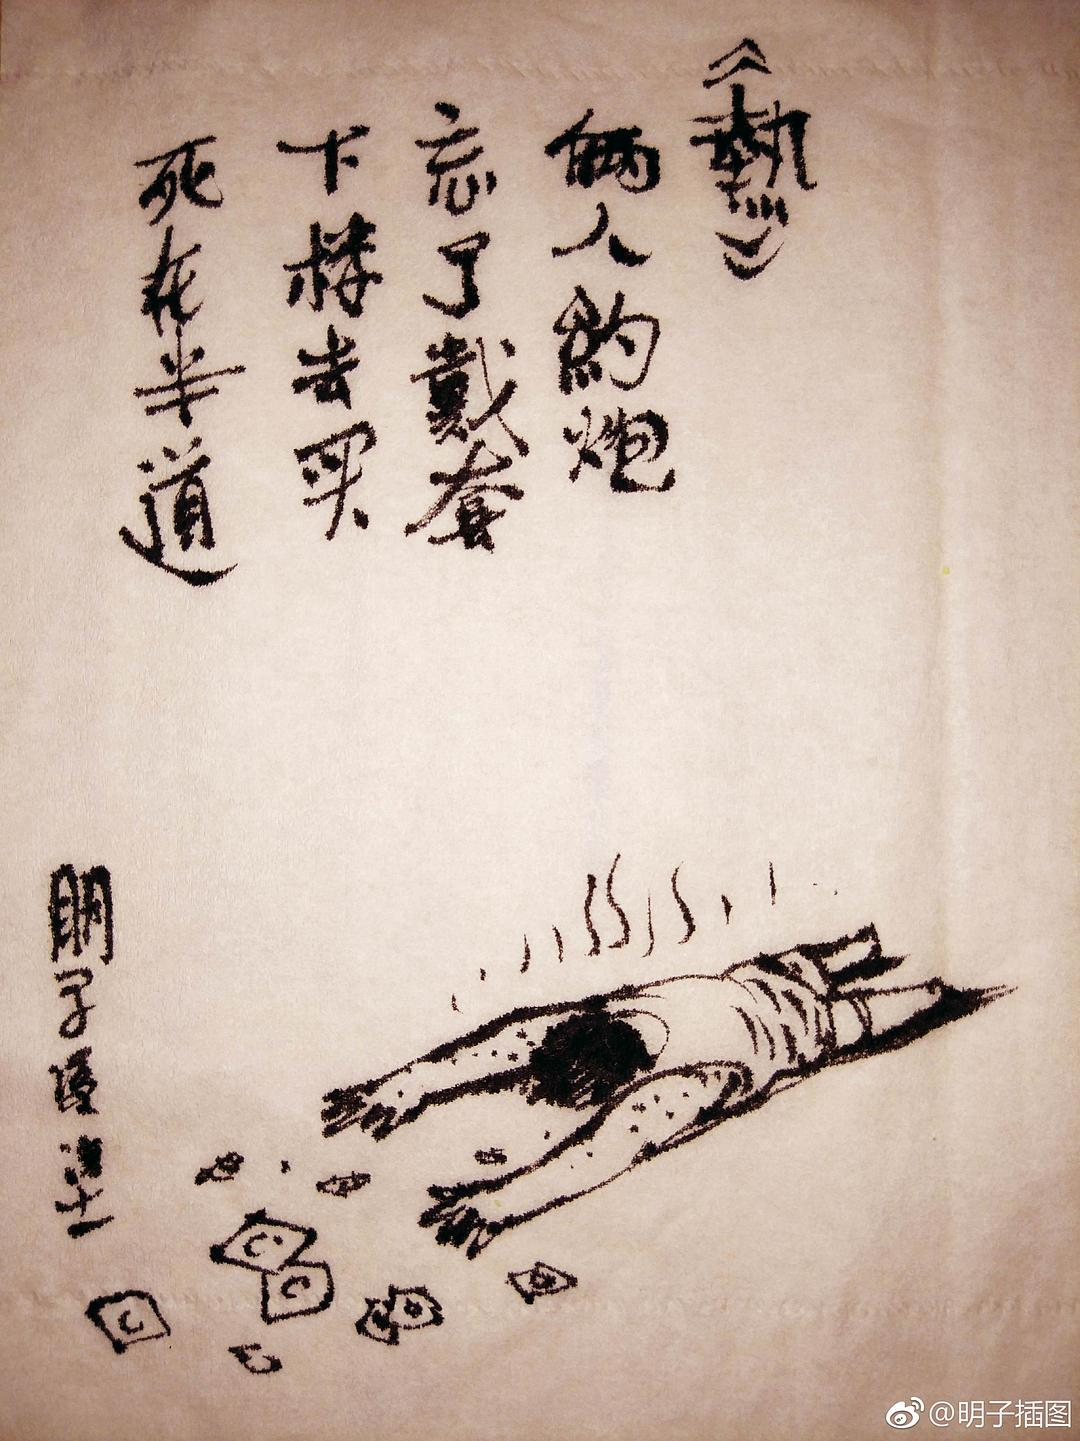 《熱》
俩人約炮
忘了戴套
下楼去买
死在半道
明子涂
@明子插图